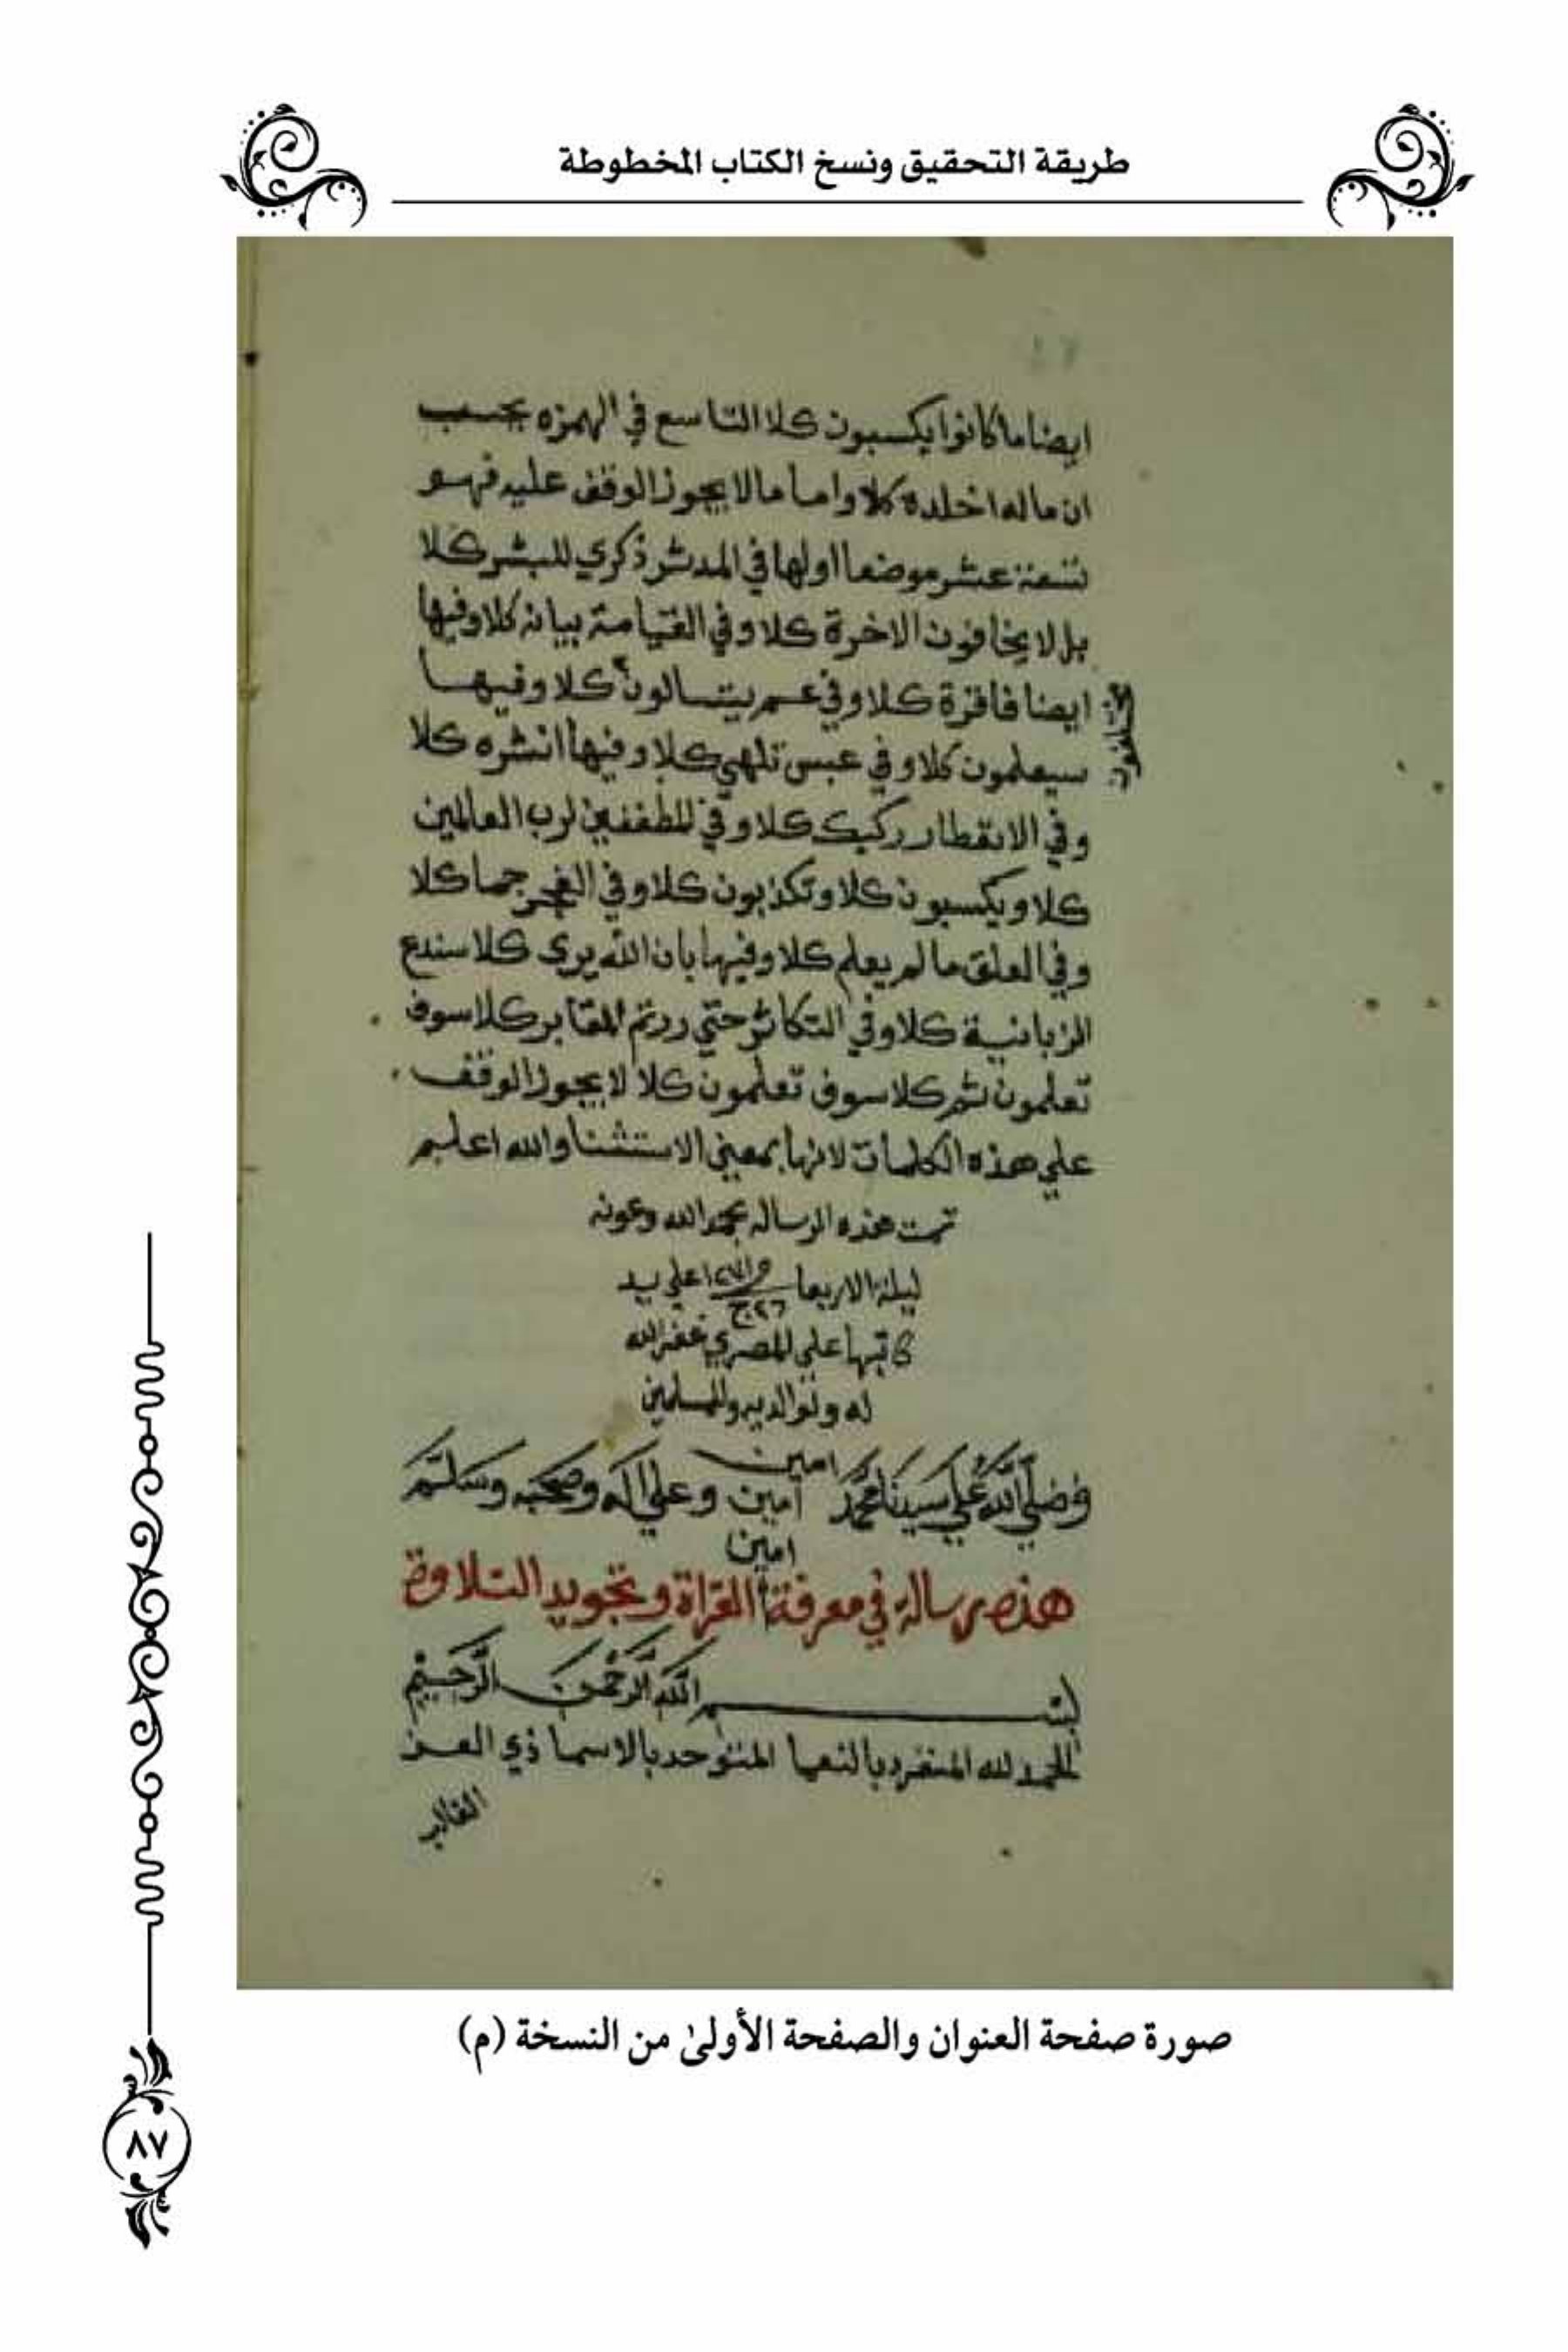 طريقة التحقيق ونسخ الكتاب المخطوطة
ايضا ما كانوا يكسبون كلا التاسع في الهمزه يحسب
ان ماله اخلده كلا واما مالا يجوز الوقف عليه فهو
تسعة عشر موضعا اولها في المدثر ذكري للبشر كلا
بل لا يخافون الاخرة كلا وفي القيامة بيانه كلا وفيها
ايضا فاقرة كلا وفي عم يتسالون كلا وفيها
مختلفون
سيعلمون كلا وفي عبس تلهي كلا وفيها انشره كلا
وفي الانفطار ركبك كلا وفي المطففين لرب العالمين
كلا ويكسبون كلا وتكذبون كلا وفي الفجر جما كلا
وفي العلق ما لم يعلم كلا وفيها بان الله يرى كلا سندع
الزبانية كلا وفي التكاثر حتي زرتم المقابر كلا سوف
تعلمون ثم كلا سوف تعلمون كلا لا يجوز الوقف
علي هذه الكلمات لانها بمعني الاستثنا والله اعلم
تمت هذه الرساله بحمد الله وعونه
ليلة الاربعا علي يد
كاتبها علي المصري غفر الله
له ولوالديه وللمسلمين
امين
وصلي الله علي سيدنا محمد امين وعلي اله وصحبه وسلم
امين
هذه رسالة في معرفة القراة وتجويد التلاوة
بسم الله الرحمن الرحيم
الحمد لله المنفرد بالنعما المتوحد بالاسما ذي العز
صورة صفحة العنوان والصفحة الأولىٰ من النسخة (م)
٨٧